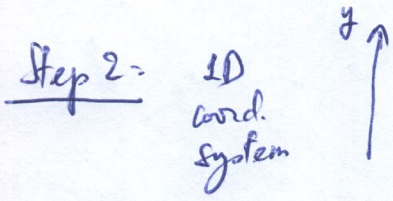 y
Step 2: 1D
coord.
system